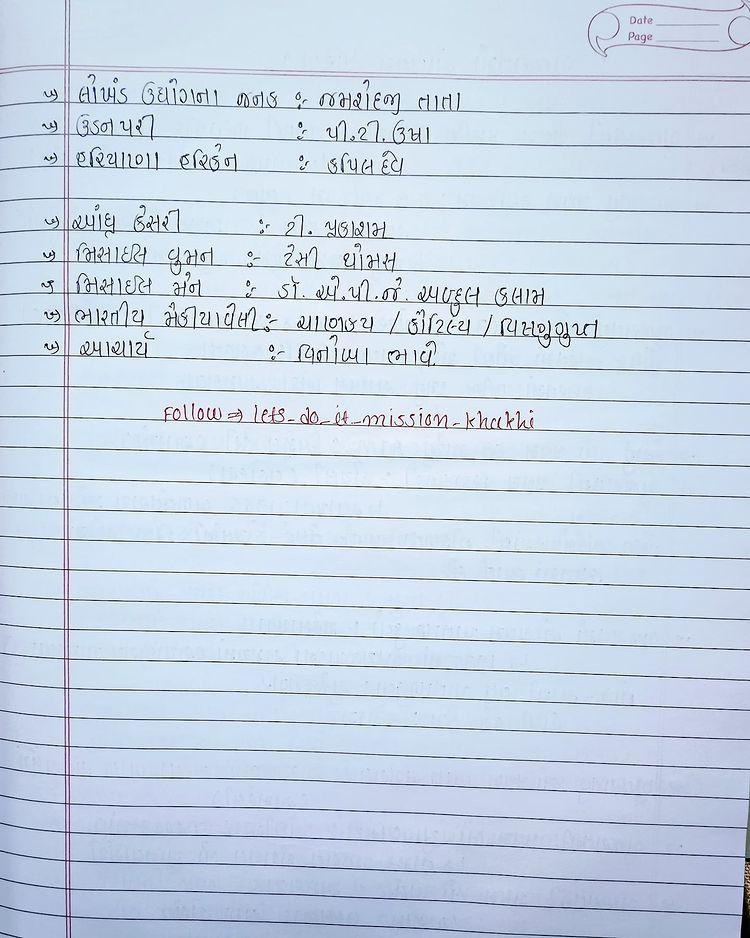 Date
Page
લોખંડ ઉદ્યોગના જનક :- જમશેદજી તાતા
ઉડનપરી :- પી.ટી.ઉષા
હરિયાણા હરિકેન :- કપિલ દેવ
આંધ્ર કેસરી :- ટી. પ્રકાશમ
મિસાઇલ વુમન :- ટેસી થોમસ
મિસાઇલ મેન :- ડૉ. એ.પી.જે. અબ્દુલ કલામ
ભારતીય મેકીયાવેલી :- ચાણક્ય / કૌટિલ્ય / વિષ્ણુગુપ્ત
આચાર્ય :- વિનોબા ભાવે
Follow ⇒ lets_do_it_mission_khakhi